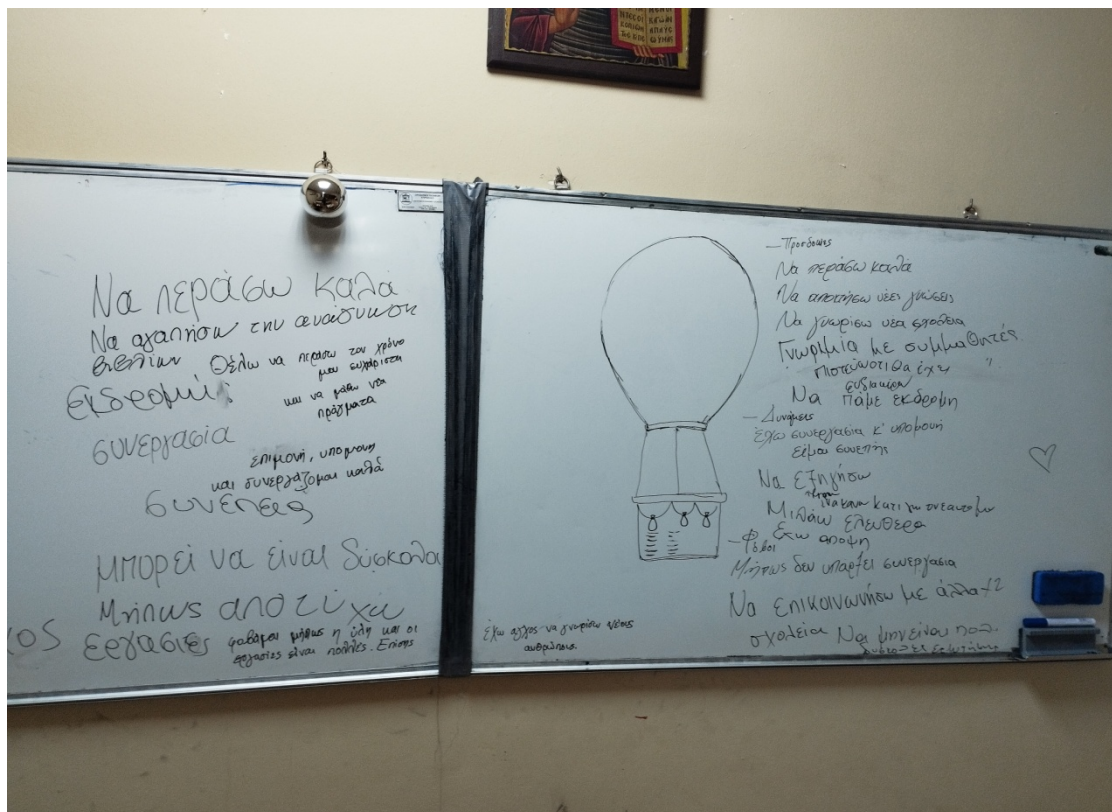 Να περάσω καλά
Να αγαπήσω την ανάγνωση
βιβλίων
Θέλω να περάσω τον χρόνο
μου ευχάριστα
και να μάθω νέα
πράγματα
εκδρομές
συνεργασία
επιμονή, υπομονή
και συνεργάζομαι καλά
συνέπεια
Μπορεί να είναι δύσκολα
Μήπως αποτύχω
εργασίες
φοβάμαι μήπως η ύλη και οι
εργασίες είναι πολλές. Επίσης
έχω άγχος να γνωρίσω νέους
ανθρώπους
— Προσδοκίες
Να περάσω καλά
Να αποκτήσω νέες γνώσεις
Να γνωρίσω νέα σχολεία
Γνωριμία με συμμαθητές
πιστεύω οτι θα έχει
ενδιαφέρον
Να πάμε εκδρομή
— Δυνάμεις
Έχω συνεργασία κ' υπομονή
είμαι συνεπής
Να εξηγήσω
να κάνω κάτι για τον εαυτό μου
Μιλάω ελεύθερα
Έχω άποψη
— Φόβοι
Μήπως δεν υπάρξει συνεργασία
Να επικοινωνήσω με άλλα +2
σχολεία
Να μην είναι πολύ